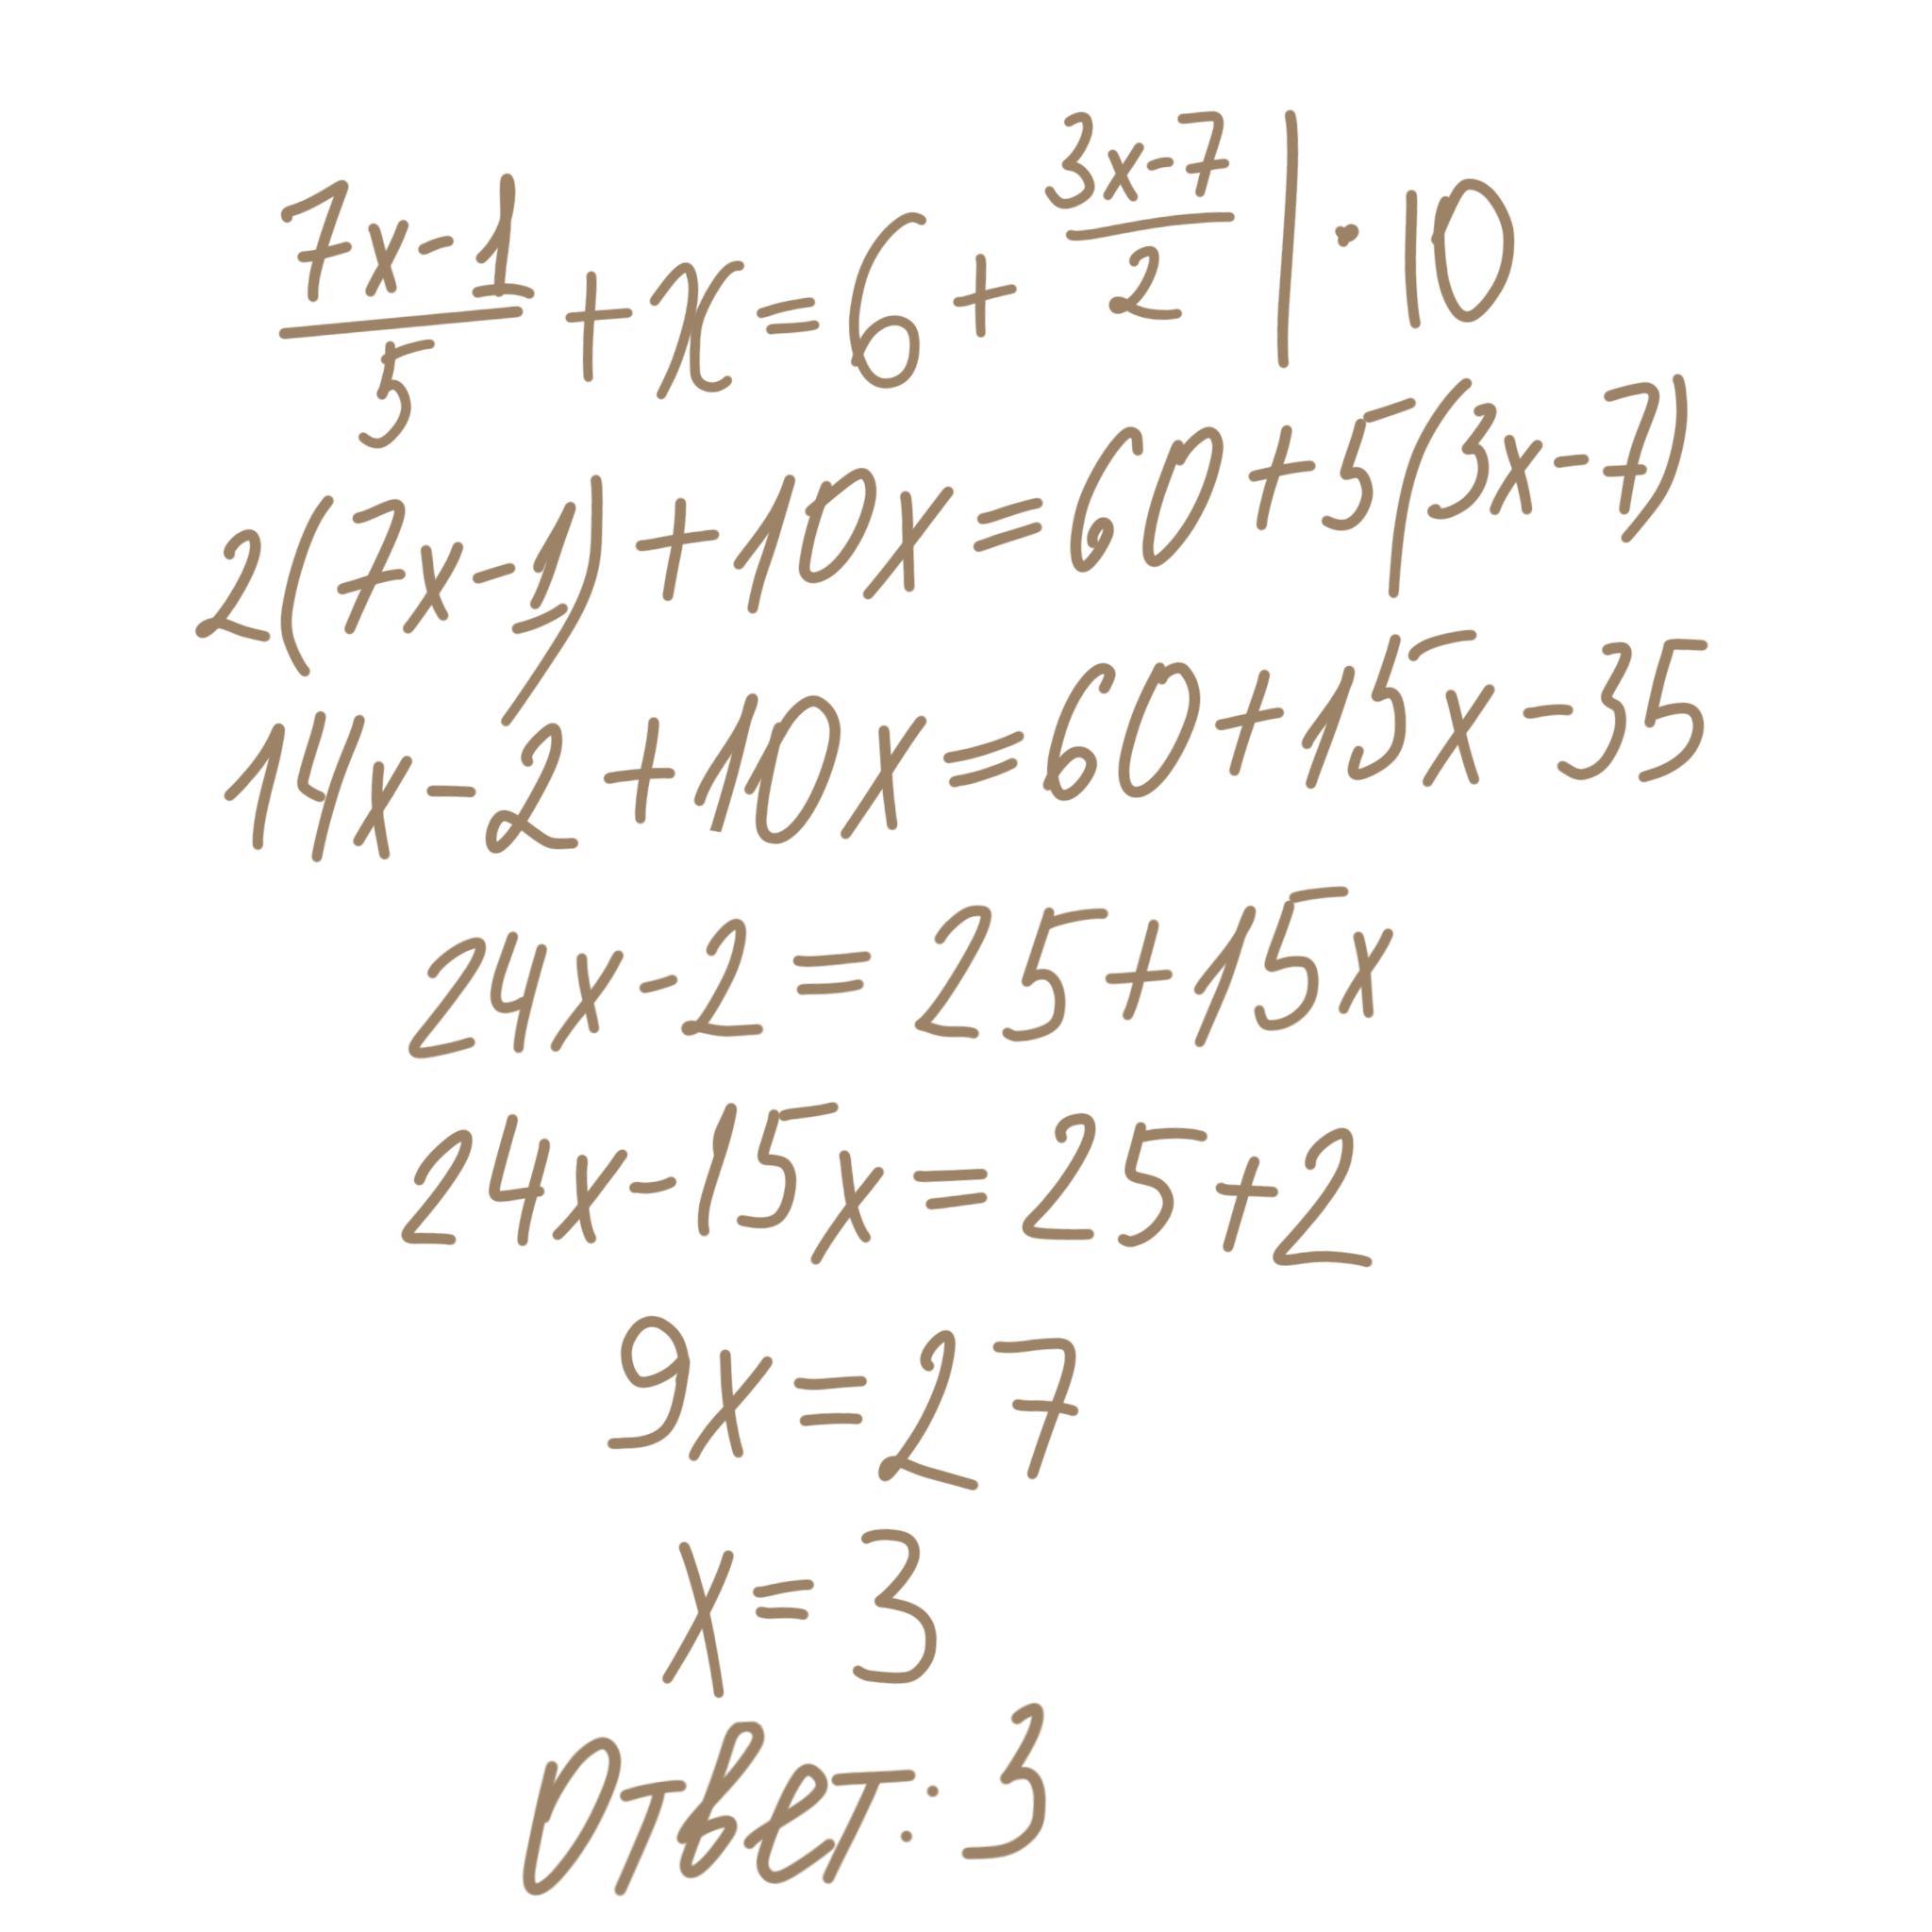 (7x-1)/5 + x = 6 + (3x-7)/2 | · 10
2(7x-1) + 10x = 60 + 5(3x-7)
14x-2 + 10x = 60 + 15x - 35
24x - 2 = 25 + 15x
24x - 15x = 25 + 2
9x = 27
x = 3
Ответ: 3